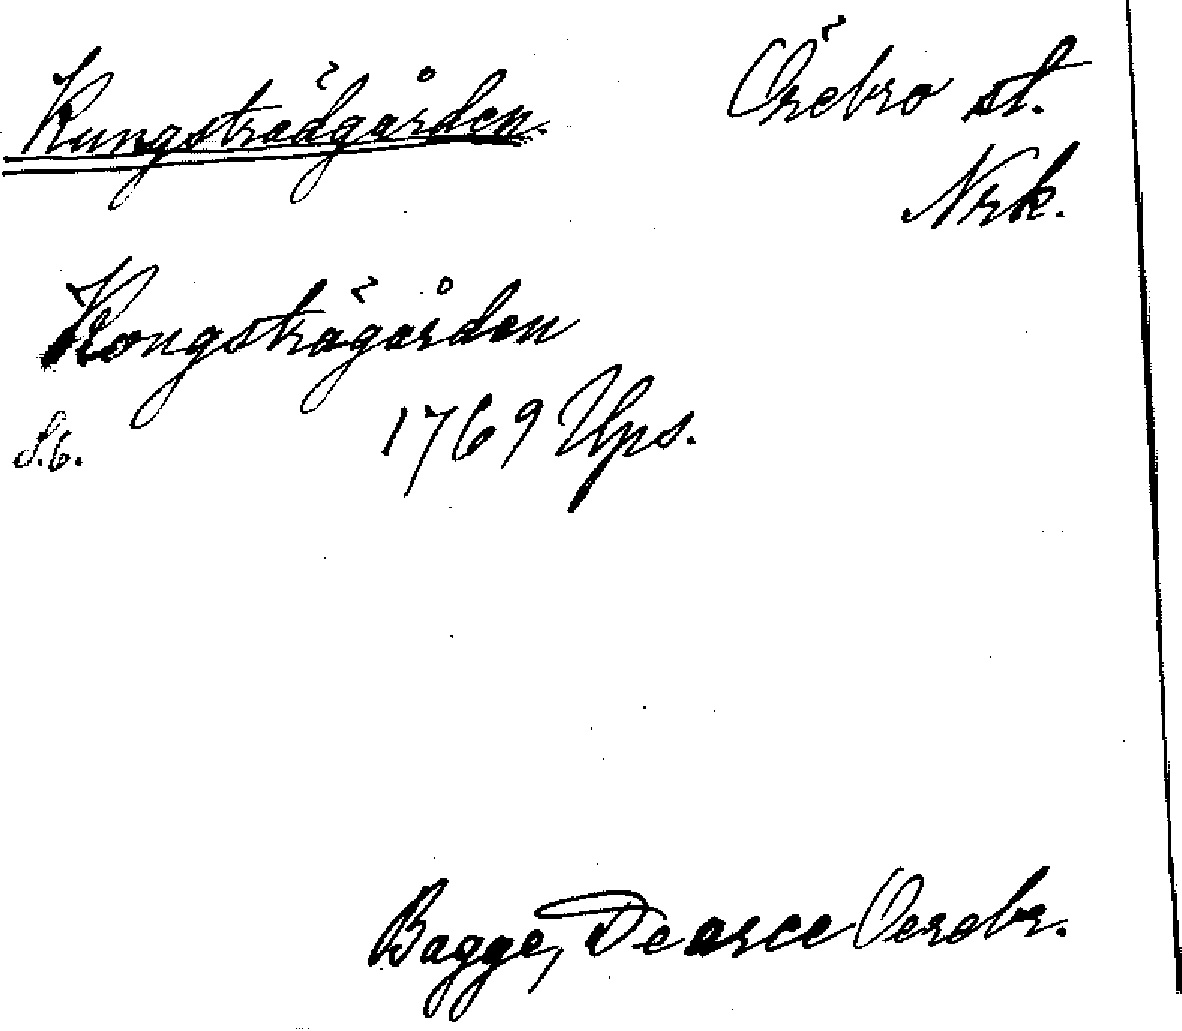 Kungsträdgården. Örebro st.
Nrk.
Kongsträgården
S.6. 1769 Ups.
Bagge, De arce Oerebr.